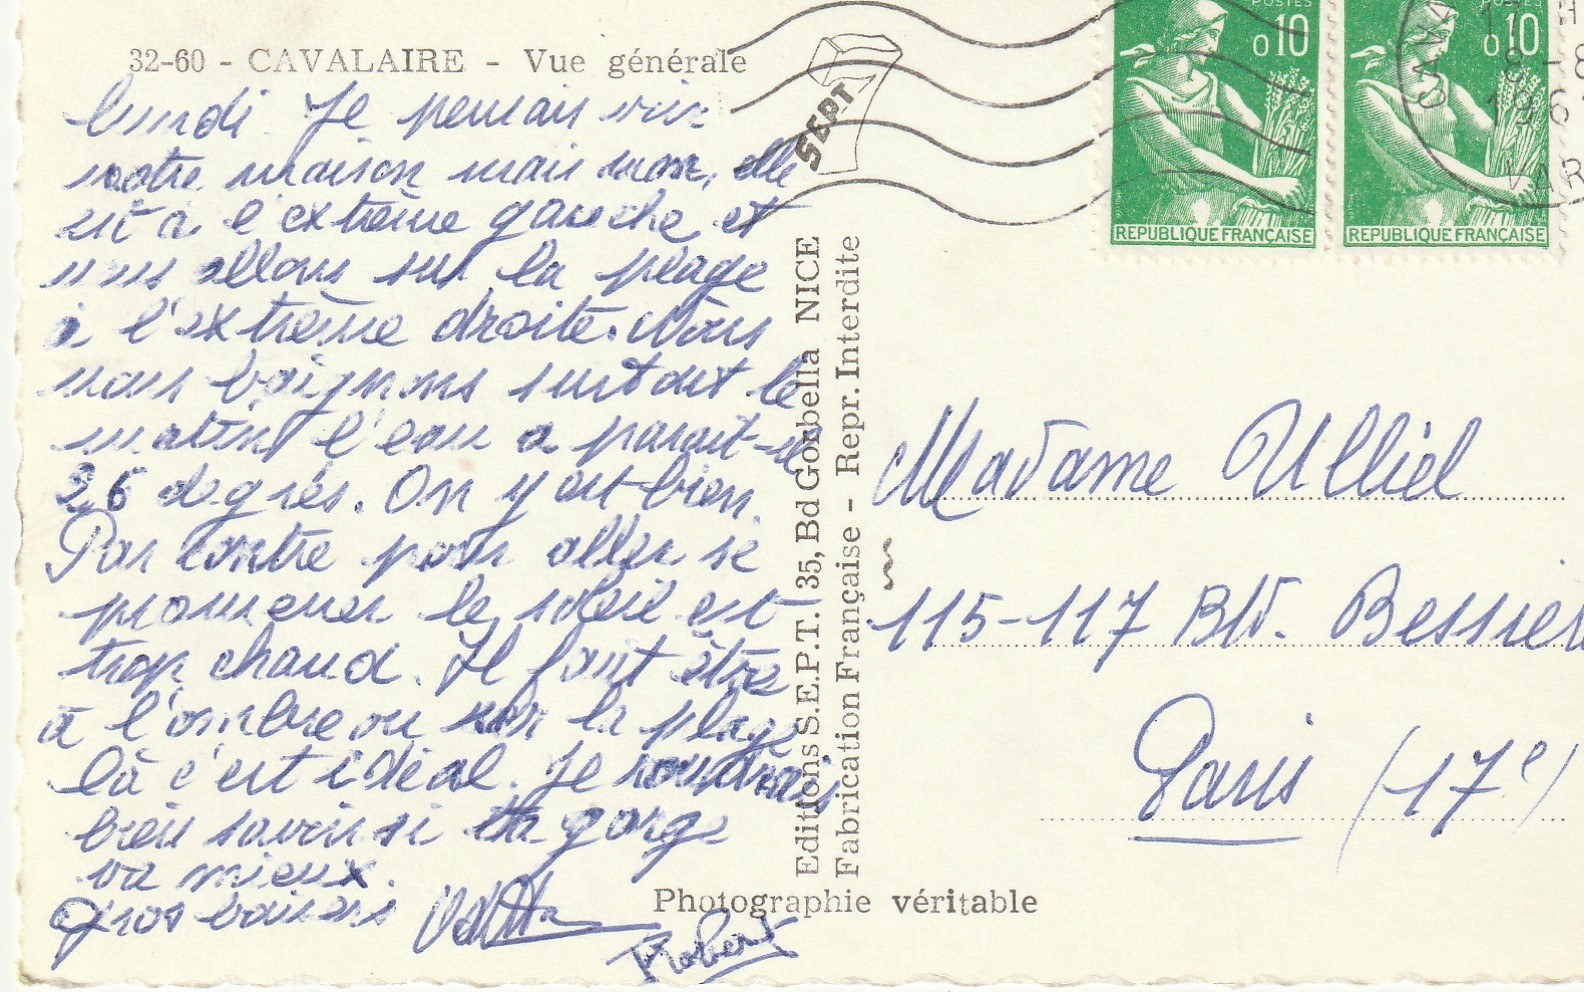 32-60 - CAVALAIRE - Vue générale
lundi. Je pensais voir
notre maison mais non, elle
est à l'extrême gauche et
nous allons sur la plage
à l'extrême droite. Nous
nous baignons surtout le
matin, l'eau a paraît-il
26 degrés. On y est bien.
Par contre pour aller se
promener le soleil est
trop chaud. Il faut être
à l'ombre ou sur la plage
là c'est idéal. Je voudrais
bien savoir si ta gorge
va mieux.
Gros baisers
Robert
Editions S.E.P.T. 35, Bd Gorbella NICE
Fabrication Française - Repr. Interdite
Photographie véritable
SEPT
POSTES
0,10
REPUBLIQUE FRANÇAISE
POSTES
0,10
REPUBLIQUE FRANÇAISE
CAVA
H
8 - 8
196
VAR
Madame Ulliel
115-117 Bld. Bessières
Paris (17e)